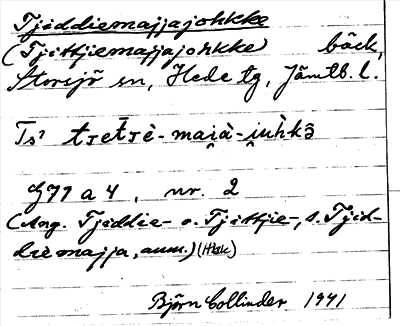 Tjiddiemajjajohkke
(Tjittjiemajjajohkke) bäck,
Storsjö sn, Hede tg, Jämtl. l.
Ts?
G 71 a 4, nr. 2
(Ang. Tjiddie- o. Tjittjie-, s. Tjid-
diemajja, anm.)
Björn Collinder 1941